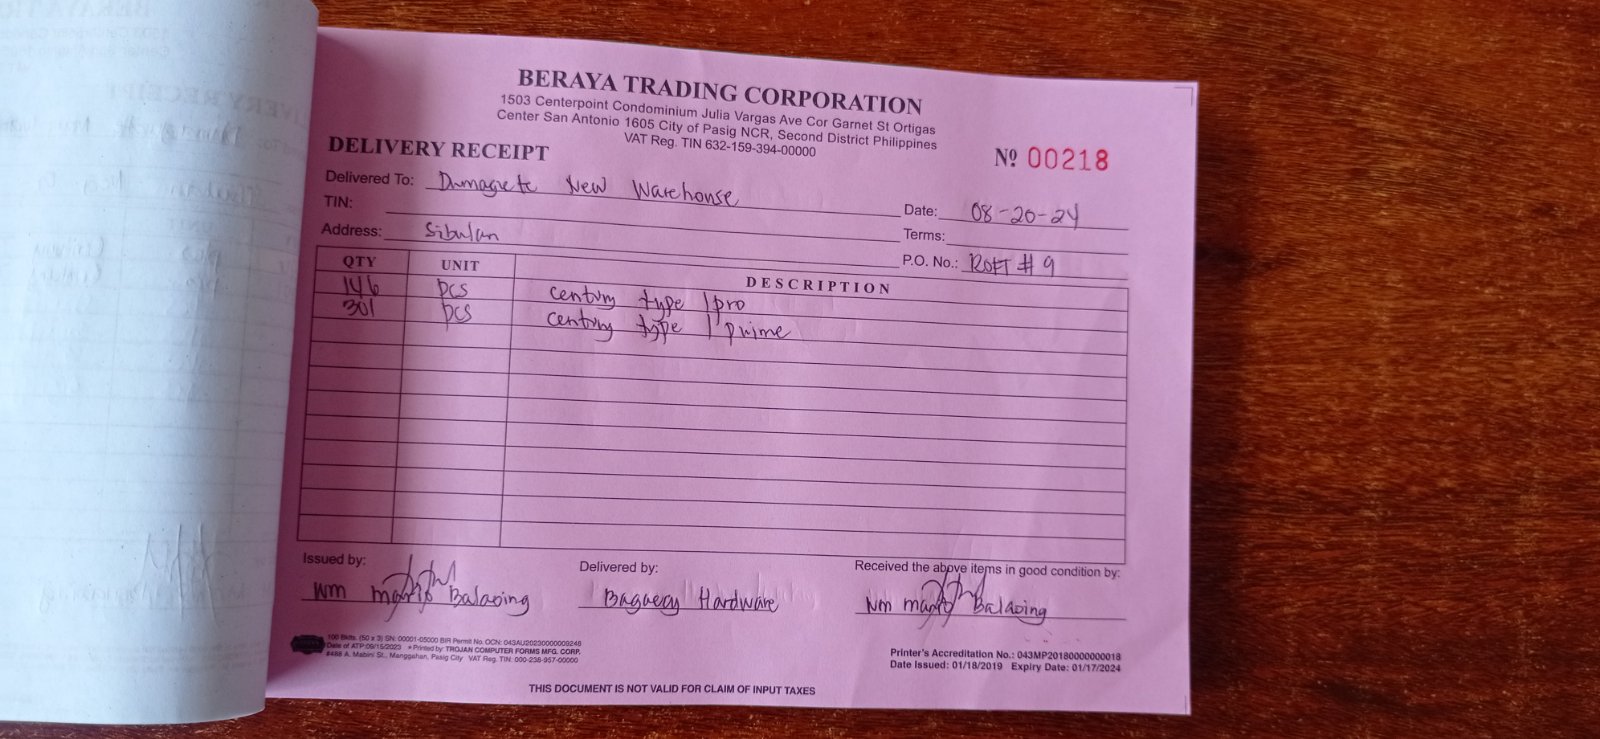 BERAYA TRADING CORPORATION
1503 Centerpoint Condominium Julia Vargas Ave Cor Garnet St Ortigas
Center San Antonio 1605 City of Pasig NCR, Second District Philippines
VAT Reg. TIN 632-159-394-00000
DELIVERY RECEIPT
Nº 00218
Delivered To: Dumaguete New Warehouse
TIN:
Date: 08-20-24
Address: Sibulan
Terms:
P.O. No.: # 9
QTY UNIT DESCRIPTION
146 pcs century type 1 pro
301 pcs century type 1 prime
Issued by: Delivered by: Received the above items in good condition by:
Balaoing Hardware Balaoing
100 Bklts. (50 x 3) SN: 00001-05000 BIR Permit No. OCN: 043AU20230000009246
Date of ATP:09/15/2023 Printed by: TROJAN COMPUTER FORMS MFG. CORP.
#488 A. Mabini St., Manggahan, Pasig City VAT Reg. TIN: 000-238-957-00000
Printer's Accreditation No.: 043MP20180000000018
Date Issued: 01/18/2019 Expiry Date: 01/17/2024
THIS DOCUMENT IS NOT VALID FOR CLAIM OF INPUT TAXES